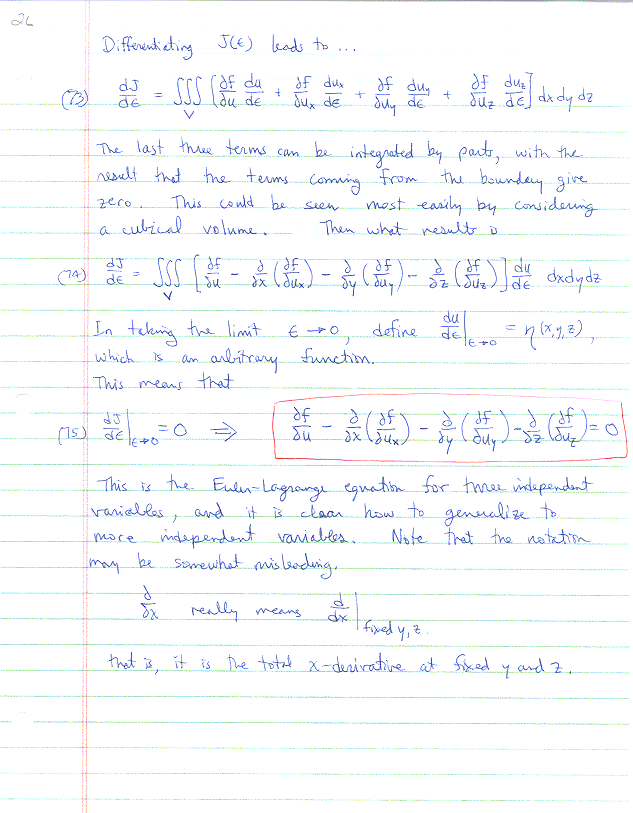 26
Differentiating J(ϵ) leads to ...
(73) dJ/dϵ = ∭_V [∂f/∂u du/dϵ + ∂f/∂u_x du_x/dϵ + ∂f/∂u_y du_y/dϵ + ∂f/∂u_z du_z/dϵ] dx dy dz
The last three terms can be integrated by parts, with the
result that the terms coming from the boundary give
zero. This could be seen most easily by considering
a cubical volume. Then what results is
(74) dJ/dϵ = ∭_V [∂f/∂u - ∂/∂x (∂f/∂u_x) - ∂/∂y (∂f/∂u_y) - ∂/∂z (∂f/∂u_z)] du/dϵ dx dy dz
In taking the limit ϵ → 0, define du/dϵ|_{ϵ→0} = η(x,y,z),
which is an arbitrary function.
This means that
(75) dJ/dϵ|_{ϵ→0} = 0 ⇒ ∂f/∂u - ∂/∂x (∂f/∂u_x) - ∂/∂y (∂f/∂u_y) - ∂/∂z (∂f/∂u_z) = 0
This is the Euler-Lagrange equation for three independent
variables, and it is clear how to generalize to
more independent variables. Note that the notation
may be somewhat misleading.
∂/∂x really means d/dx|_{fixed y, z.}
that is, it is the total x-derivative at fixed y and z.